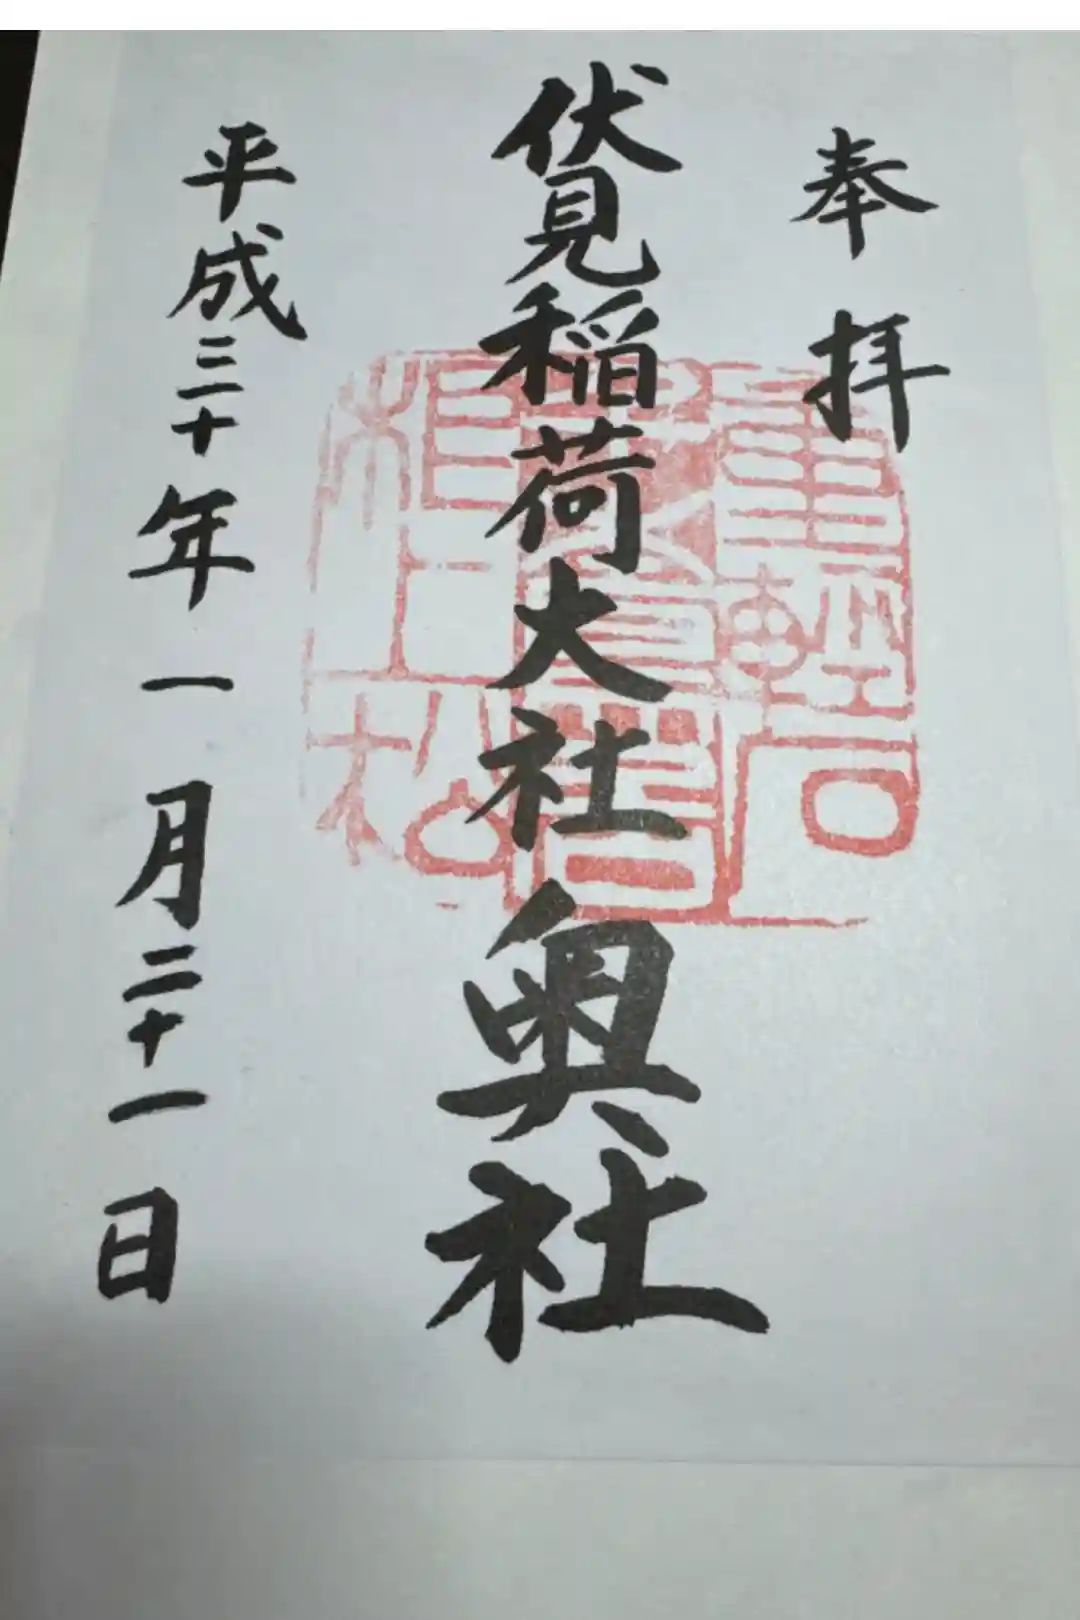 奉拝
伏見稲荷大社奥社
平成三十年一月二十一日